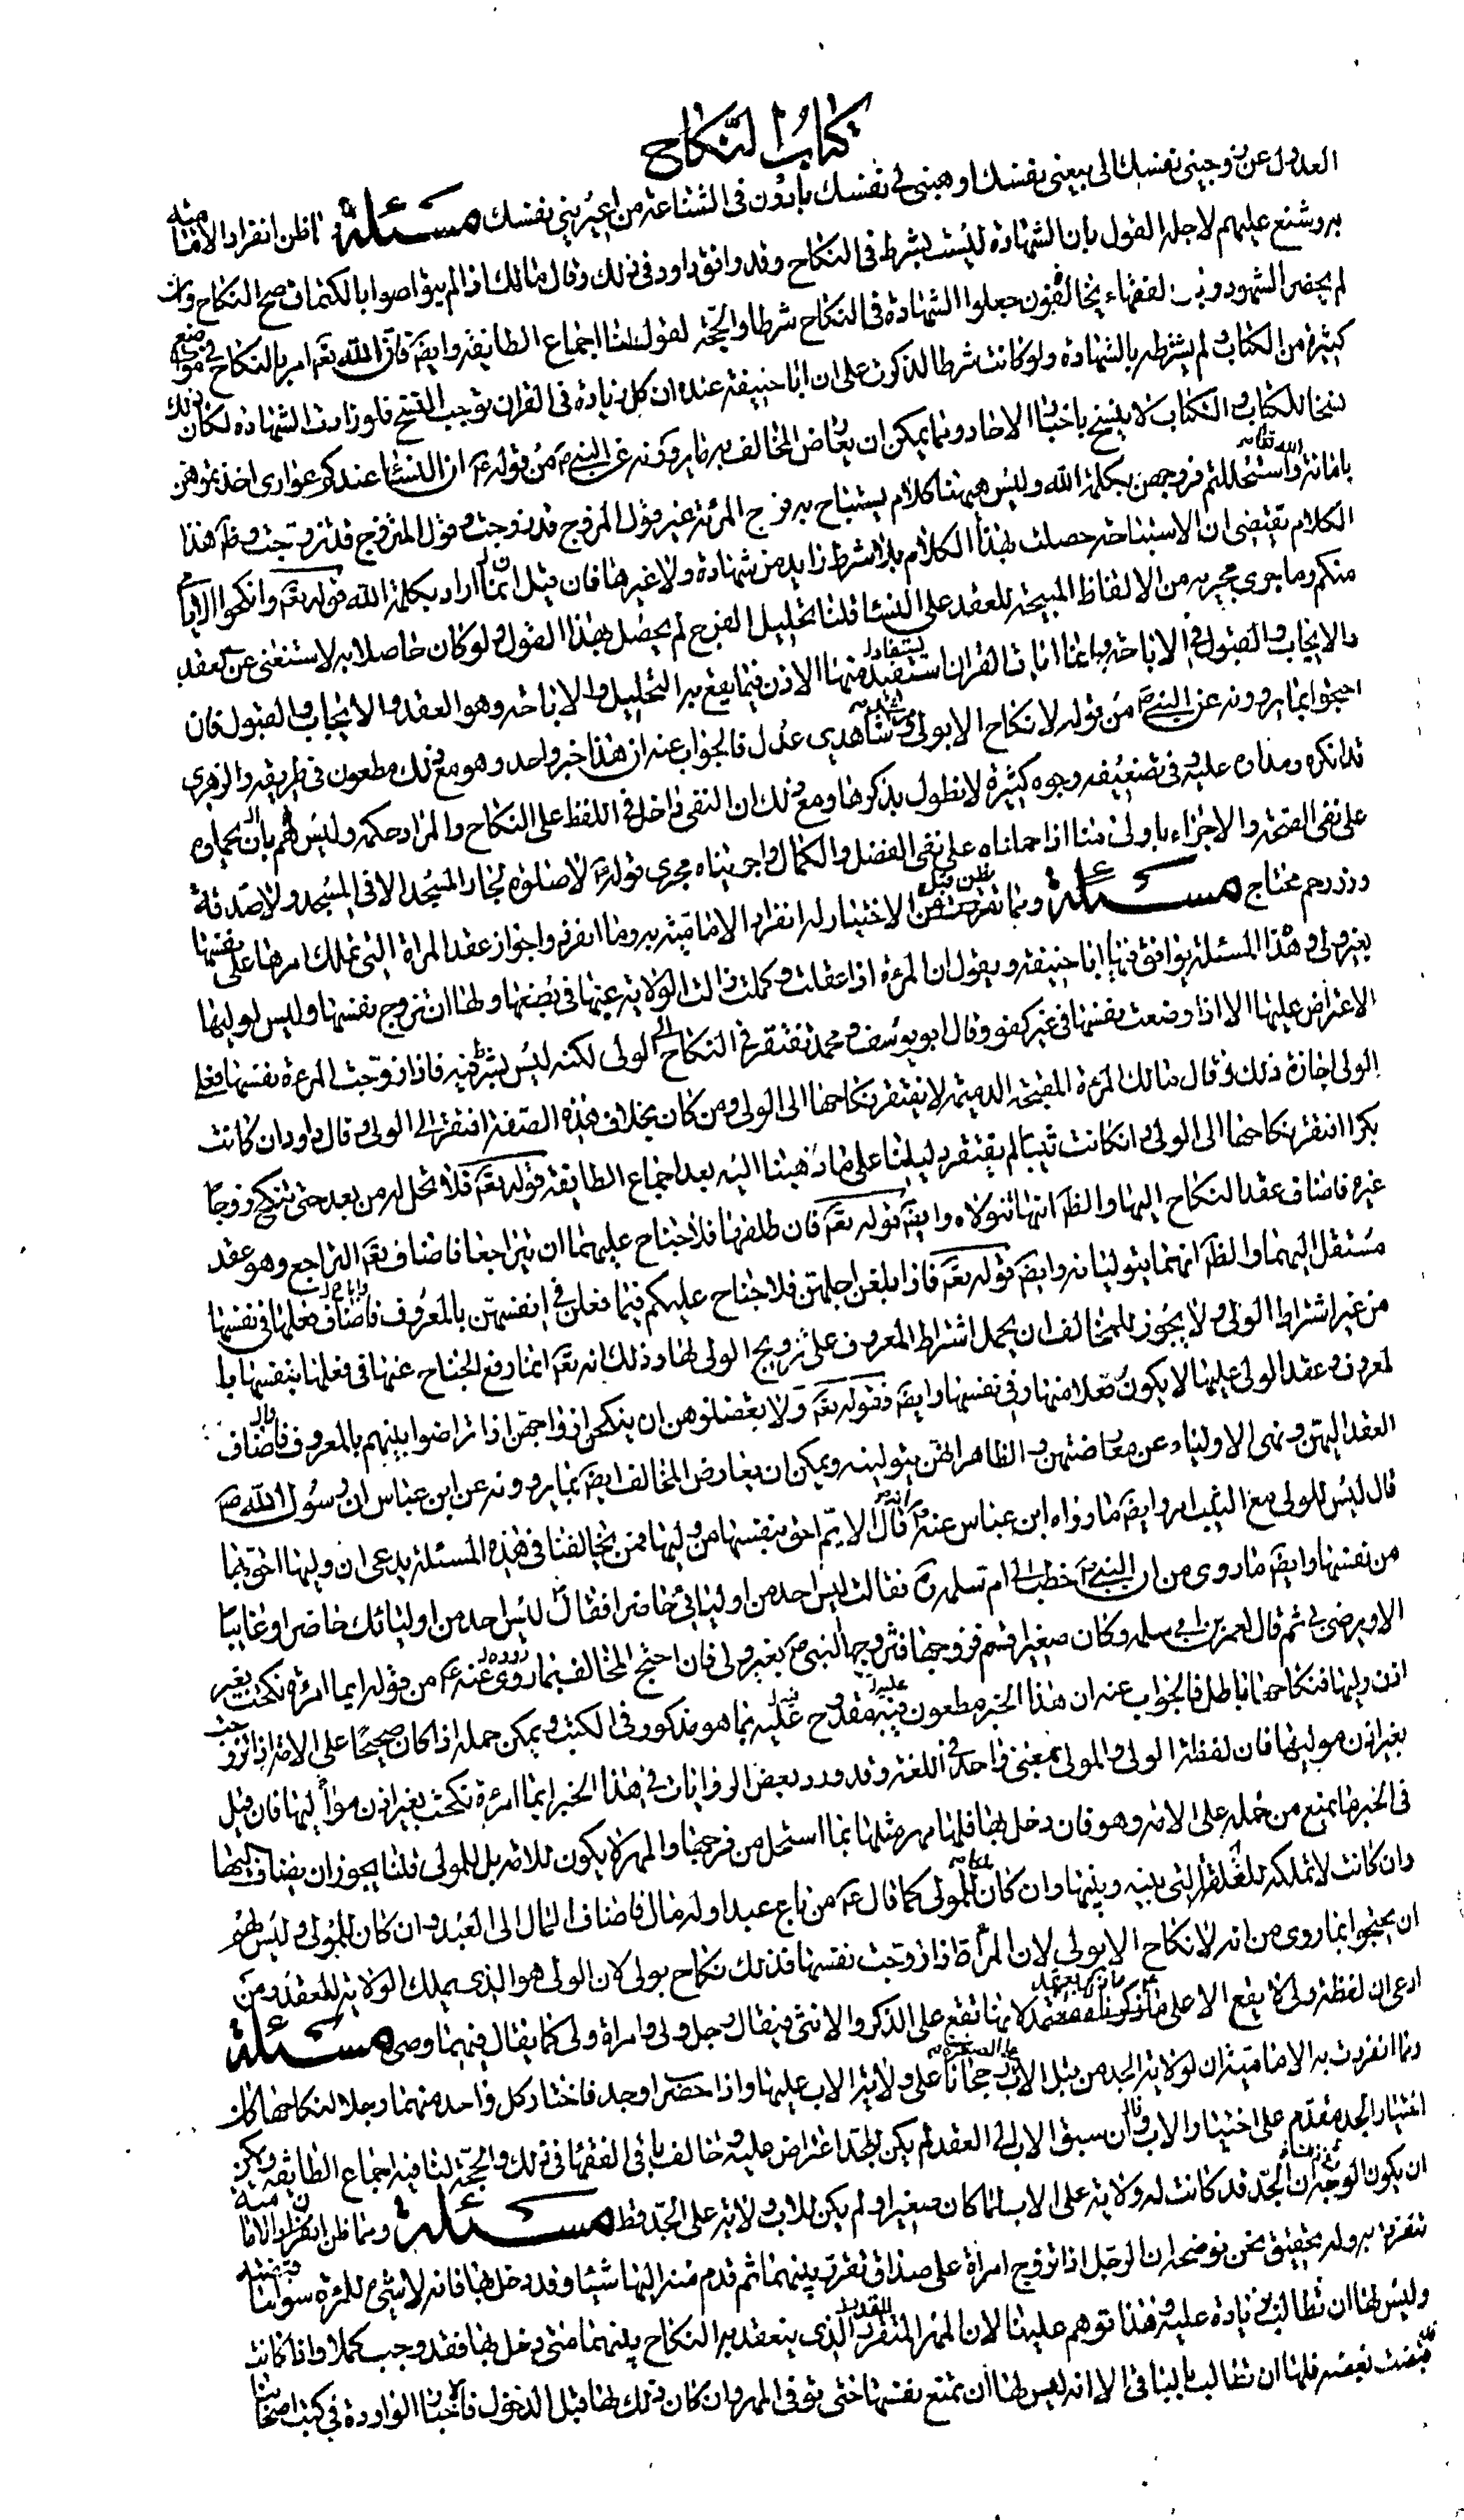 كتاب النكاح
العدول عن زوجيني نفسك الى بيعيني نفسك او هبني لي نفسك بادون في الشناعة من اجيريني نفسك مسئلة مما ظن انفراد الامامية
به وشنع عليهم لاجله القول بان الشهادة ليست بشرط في النكاح وقد وافق داود في ذلك وقال مالك اذا لم يتواصوا بالكتمان صح النكاح وان
لم يحضر الشهود وباقي الفقهاء يخالفون جعلوا الشهادة في النكاح شرطا والحجة لقولنا اجماع الطايفة وايضا فان الله تع امر بالنكاح في مواضع
كثيرة من الكتاب ولم يشترطه بالشهادة ولو كانت شرطا لذكرت على ان ابا حنيفة عنده ان كل زيادة في القران توجب النسخ فلو زادت الشهادة لكان ذلك
نسخا للكتاب والكتاب لا ينسخ باخبار الاحاد ومما يمكن ان يعارض المخالف به ما يروونه عن النبي ص من قوله ع ان النسا عندكم عواري اخذتموهن
بامانة الله تعالى واستحللتم فروجهن بكلمة الله وليس ههنا كلام يستباح به فرج المرئة غير قول المزوج قد زوجت وقول المتزوج قد تزوجت وظاهر هذا
الكلام يقتضي ان الاستباحة حصلت بهذا الكلام بلا شرط زايد من شهادة ولا غيرها فان قيل انما اراد بكلمة الله قوله تع وانكحوا الايامى
منكم وما جرى مجراه من الالفاظ المبيحة للعقد على النسا قلنا تحليل الفرج لم يحصل بهذا القول ولو كان حاصلا به لاستغنى عن العقد
والايجاب والقبول في الاباحة وانما ايات القران استفيد منها الاذن فيما يقع به التحليل والاباحة وهو العقد والايجاب والقبول فان
احتجوا بما يروونه عن النبي ص من قوله لا نكاح الا بولي وشاهدي عدل فالجواب عنه ان هذا خبر واحد وهو مع ذلك مطعون في طريقه والزهري
قد انكره ومداره عليه وفي تضعيفه وجوه كثيرة لا نطول بذكرها ومع ذلك ان النفي داخل في اللفظ على النكاح والمراد حكمه وليس لهم بان يحملوه
على نفي الصحة والاجزاء باولى منا اذا حملناه على نفي الفضل والكمال واجريناه مجرى قوله ع لا صلوة لجار المسجد الا في المسجد ولا صدقة
وذو رحم محتاج مسئلة ومما يظن قبل الاختبار له انفراد الامامية به وما انفردوا جواز عقد المراة التي تملك امرها على نفسها
بغير ولي وهذا المسئلة يوافق فيها ابا حنيفة ويقول ان المرءة اذا عقلت وكملت زالت الولاية عنها في بضعها ولها ان تزوج نفسها وليس لوليها
الاعتراض عليها الا اذا وضعت نفسها في غير كفو وقال ابو يوسف ومحمد تفتقر في النكاح الى الولي لكنه ليس بشرط فيه فاذا زوجت المرءة نفسها فعلى
الولي اجازة ذلك وقال مالك المرءة المقبحة الذميمة لا يفتقر نكاحها الى الولي ومن كان بخلاف هذه الصفة افتقر الى الولي وقال داود ان كانت
بكرا افتقر نكاحها الى الولي وان كانت ثيبا لم يفتقر دليلنا على ما ذهبنا اليه بعد اجماع الطايفة قوله تع فلا تحل له من بعد حتى تنكح زوجا
غيره فاضاف عقد النكاح اليها والظ انها تتولاه وايضا قوله تع فان طلقها فلا جناح عليهما ان يتراجعا فاضاف تع التراجع وهو عقد
مستقل اليهما والظ انهما يتوليانه وايضا قوله تع فاذا بلغن اجلهن فلا جناح عليكم فيما فعلن في انفسهن بالمعروف فاضاف فعلها في نفسها
من غير اشتراط الولي ولا يجوز للمخالف ان يحمل اشتراط المعروف على تزويج الولي لها وذلك انه تع انما رفع الجناح عنها في فعلها بنفسها با
لمعروف وعقد الولي عليها لا يكون فعلا منها في نفسها وايضا فقوله تع ولا تعضلوهن ان ينكحن ازواجهن اذا تراضوا بينهم بالمعروف فاضاف
العقد اليهن ونهى الاولياء عن معارضتهن والظاهر انهن يتولينه ويمكن ان يعارض المخالف ايضا بما يروونه عن ابن عباس ان رسول الله ص
قال ليس للولي مع الثيب امر وايضا ما رواه ابن عباس عنه ص انه قال الايم احق بنفسها من وليها فمن يخالفنا في هذه المسئلة يدعي ان وليها احق بها
من نفسها وايضا ما روي من ان النبي ص خطب الى ام سلمة ره فقالت ليس احد من اوليائي حاضرا فقال ليس احد من اوليائك حاضرا او غايبا
الا ويرضى بي ثم قال لعمر بن ابي سلمة وكان صغيرا قم فزوجها فتزوجها النبي ص بغير ولي فان احتج المخالف بما روي عنه ع من قوله ايما امرءة نكحت بغير
اذن وليها فنكاحها باطل فالجواب عنه ان هذا الخبر مطعون فيه مقدوح عليه بما هو مذكور في الكتب ويمكن حمله اذا كان صحيحا على الامة اذا تزوجت
بغير اذن موليها فان لفظة الولي والمولى بمعنى واحد في اللغة وقد ورد بعض الروايات في هذا الخبر ايما امرءة نكحت بغير اذن مواليها فان قيل
في الخبر ما يمنع من حمله على الامة وهو فان دخل بها فلها مهر مثلها بما استحل من فرجها والمهر لا يكون للامة بل للمولى قلنا يجوز ان يضاف اليها
وان كانت لا تملكه للعلقة التي بينه وبينها وان كان للمولى كما قال ع من باع عبدا وله مال فاضاف المال الى العبد وان كان للمولى وليس لهم
ان يحتجوا بما روي من انه لا نكاح الا بولي لان المرأة اذا زوجت نفسها فذلك نكاح بولي لان الولي هو الذي يملك الولاية للعقد ومن
ادعى ان لفظة ولي لا يقع الا على لانها تقع على الذكر والانثى فيقال رجل ولي وامراة ولي كما يقال فيهما وصي مسئلة
ومما انفردت به الامامية ان لولاية الجد من قبل الاب رجحانا على ولاية الاب عليها واذا حضرا وجد فاختار كل واحد منهما رجلا لنكاحها كان
اختيار الجد مقدم على اختيار الاب وان سبق الاب الى العقد لم يكن للجد اعتراض عليه وخالف باقي الفقها في ذلك والحجة لنا فيه اجماع الطايفة ويمكن
ان يكون الوجه ان الجد قد كانت له ولاية على الاب لما كان صغيرا ولم يكن للاب ولاية على الجد قط مسئلة ومما ظن انفراد الامامية
تفرد به وله تحقيق نحن نوضحه ان الرجل اذا تزوج امراة على صداق تقرر بينهما ثم قدم منه اليها شيئا وقد دخل بها فانه لا شيء للمرءة سواه
وليس لها ان تطالب بزيادة عليه وهذا توهم علينا لان المهر الذي ينعقد به النكاح بينهما متى دخل بها فقد وجب كملا واذا كانت
قبضت بعضه فلها ان تطالب بالباقي الا انه ليس لها ان تمنع نفسها حتى توفى المهر وان كان ذلك لها قبل الدخول فالاخبار الواردة في كتب اصحابنا